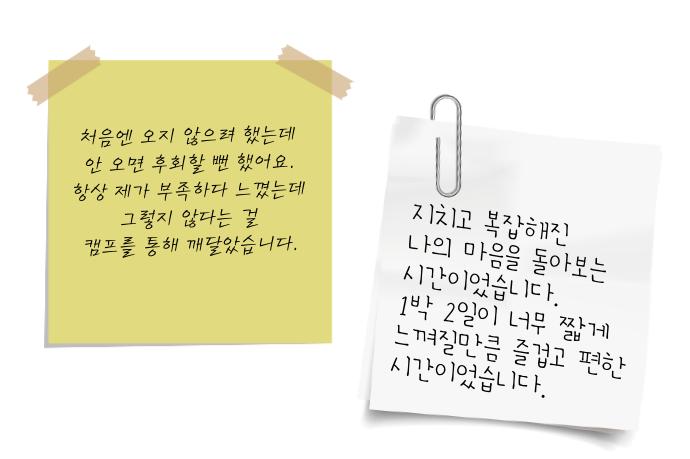 처음엔 오지 않으려 했는데
안 오면 후회할 뻔 했어요.
항상 제가 부족하다 느꼈는데
그렇지 않다는 걸
캠프를 통해 깨달았습니다.
지치고 복잡해진
나의 마음을 돌아보는
시간이었습니다.
1박 2일이 너무 짧게
느껴질만큼 즐겁고 편한
시간이었습니다.